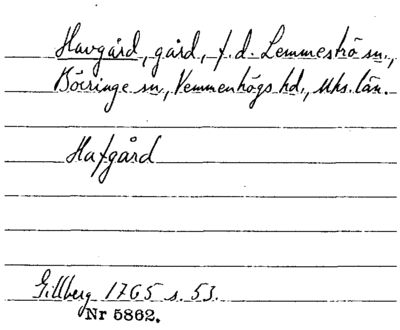 Havgård, gård, f.d. Lemmeströ sn.,
Börringe sn., Vemmenhögs hd., Mhs. län.
Hafgård
Gillberg 1765 s. 53.
Nr 5862.